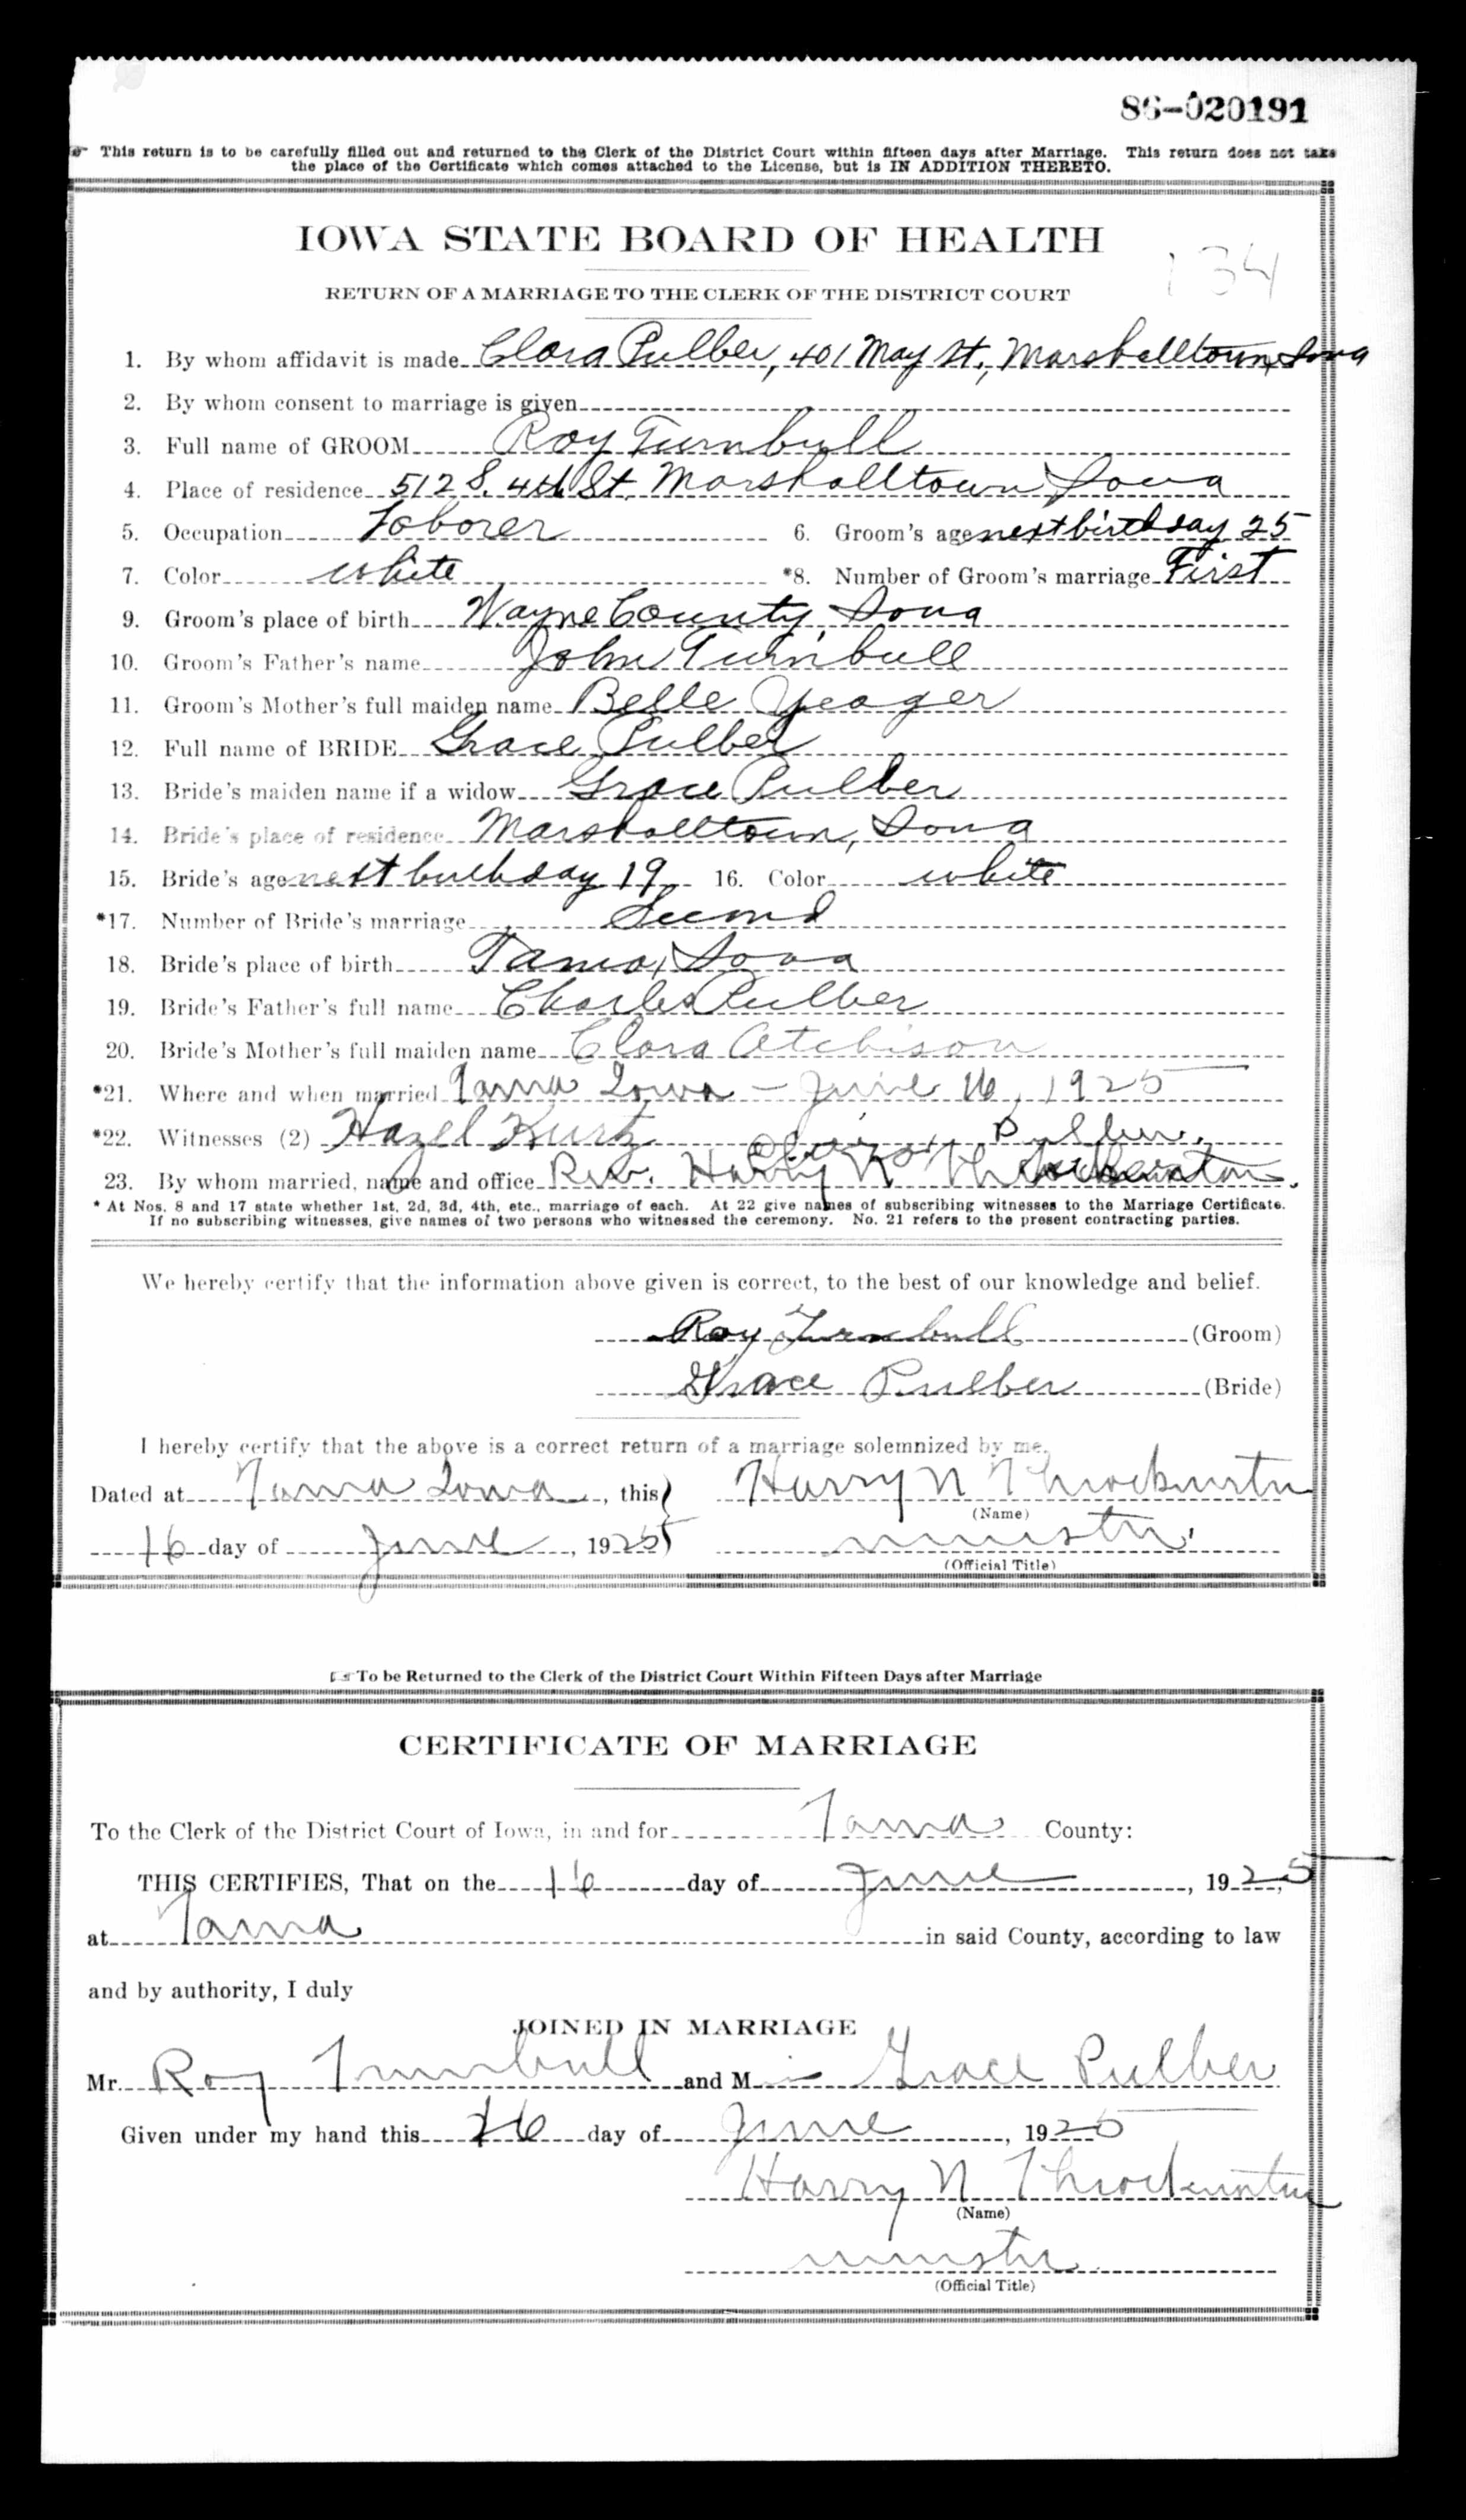 86-020191
This return is to be carefully filled out and returned to the Clerk of the District Court within fifteen days after Marriage. This return does not take
the place of the Certificate which comes attached to the License, but is IN ADDITION THERETO.
IOWA STATE BOARD OF HEALTH
134
RETURN OF A MARRIAGE TO THE CLERK OF THE DISTRICT COURT
1. By whom affidavit is made Clara Pulber, 401 May St., Marshalltown, Iowa
2. By whom consent to marriage is given
3. Full name of GROOM Roy Turnbull
4. Place of residence 512 S. 4th St. Marshalltown, Iowa
5. Occupation Laborer 6. Groom's age next birthday 25
7. Color white *8. Number of Groom's marriage First
9. Groom's place of birth Wayne County, Iowa
10. Groom's Father's name John Turnbull
11. Groom's Mother's full maiden name Belle Yeager
12. Full name of BRIDE Grace Pulber
13. Bride's maiden name if a widow Grace Pulber
14. Bride's place of residence Marshalltown, Iowa
15. Bride's age next birthday 19 16. Color white
*17. Number of Bride's marriage Second
18. Bride's place of birth Tama, Iowa
19. Bride's Father's full name Charles Pulber
20. Bride's Mother's full maiden name Clara Atchison
*21. Where and when married Tama Iowa - June 16, 1925
*22. Witnesses (2) Hazel Kurtz Pulber.
23. By whom married, name and office Rev. Harry N Throckmorton.
* At Nos. 8 and 17 state whether 1st, 2d, 3d, 4th, etc., marriage of each. At 22 give names of subscribing witnesses to the Marriage Certificate.
If no subscribing witnesses, give names of two persons who witnessed the ceremony. No. 21 refers to the present contracting parties.
We hereby certify that the information above given is correct, to the best of our knowledge and belief.
Roy Turnbull (Groom)
Grace Pulber (Bride)
I hereby certify that the above is a correct return of a marriage solemnized by me.
Dated at Tama Iowa, this Harry N Throckmorton
(Name)
16 day of June, 1925 minister.
(Official Title)
To be Returned to the Clerk of the District Court Within Fifteen Days after Marriage
CERTIFICATE OF MARRIAGE
To the Clerk of the District Court of Iowa, in and for Tama County:
THIS CERTIFIES, That on the 16 day of June, 1925,
at Tama in said County, according to law
and by authority, I duly
JOINED IN MARRIAGE
Mr. Roy Turnbull and M Grace Pulber
Given under my hand this 16 day of June, 1925
Harry N Throckmorton
(Name)
minister
(Official Title)